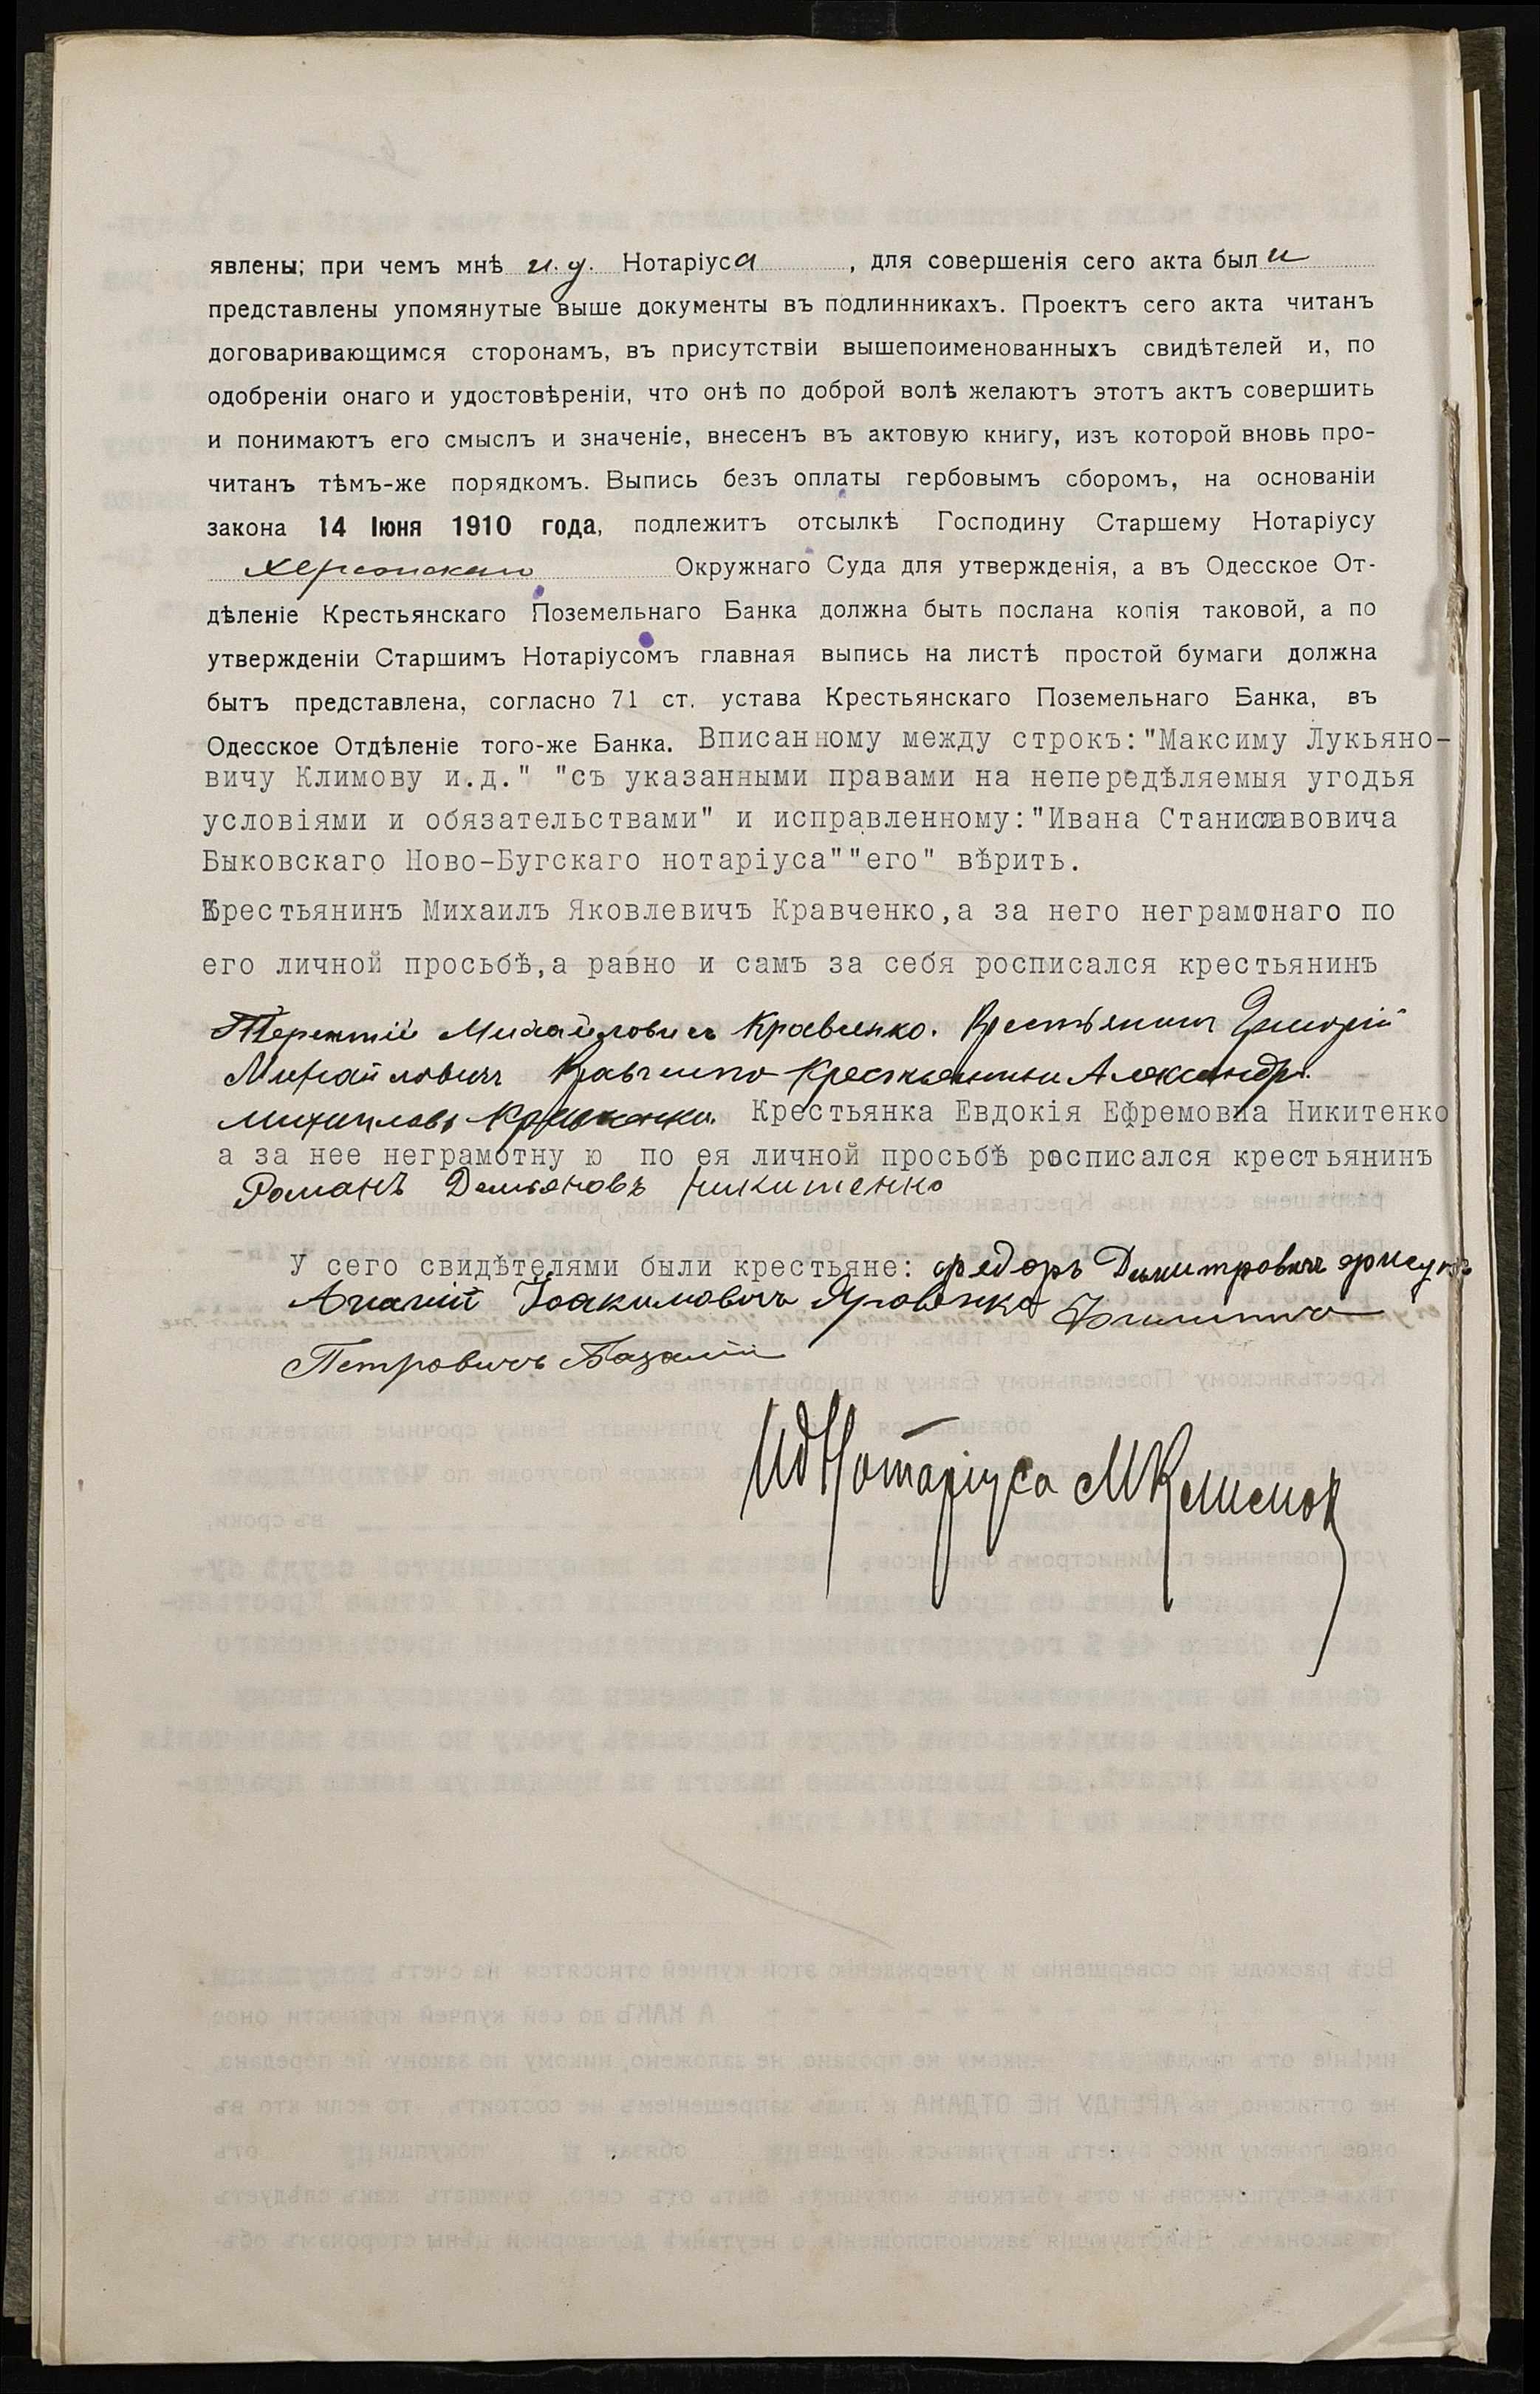 явлены; при чемъ мнѣ и. д. Нотаріуса , для совершенія сего акта были
представлены упомянутые выше документы въ подлинникахъ. Проектъ сего акта читанъ
договаривающимся сторонамъ, въ присутствіи вышепоименованныхъ свидѣтелей и, по
одобреніи онаго и удостовѣреніи, что онѣ по доброй волѣ желаютъ этотъ актъ совершить
и понимаютъ его смыслъ и значеніе, внесенъ въ актовую книгу, изъ которой вновь про-
читанъ тѣмъ-же порядкомъ. Выпись безъ оплаты гербовымъ сборомъ, на основаніи
закона 14 Іюня 1910 года, подлежитъ отсылкѣ Господину Старшему Нотаріусу
Херсонскаго Окружнаго Суда для утвержденія, а въ Одесское От-
дѣленіе Крестьянскаго Поземельнаго Банка должна быть послана копія таковой, а по
утвержденіи Старшимъ Нотаріусомъ главная выпись на листѣ простой бумаги должна
бытъ представлена, согласно 71 ст. устава Крестьянскаго Поземельнаго Банка, въ
Одесское Отдѣленіе того-же Банка. Вписанному между строкъ:"Максиму Лукьяно-
вичу Климову и.д." "съ указанными правами на непередѣляемыя угодья
условіями и обязательствами" и исправленному:"Ивана Станиславовича
Быковскаго Ново-Бугскаго нотаріуса""его" вѣрить.
Крестьянинъ Михаилъ Яковлевичъ Кравченко,а за него неграмотнаго по
его личной просьбѣ,а равно и самъ за себя росписался крестьянинъ
Терентій Михайловичъ Кравченко. Крестьянинъ Григорій
Михайловичъ Кравченко Крестьянинъ Александръ
Михайловъ Кравченко. Крестьянка Евдокія Ефремовна Никитенко
а за нее неграмотну ю по ея личной просьбѣ росписался крестьянинъ
Романъ Демьяновъ Никитенко
У сего свидѣтелями были крестьяне: Федоръ Димитровичъ
Ананій Іоакимовичъ Яровенко Филиппъ
Петровичъ Базалій
ИД Нотаріуса М Климов